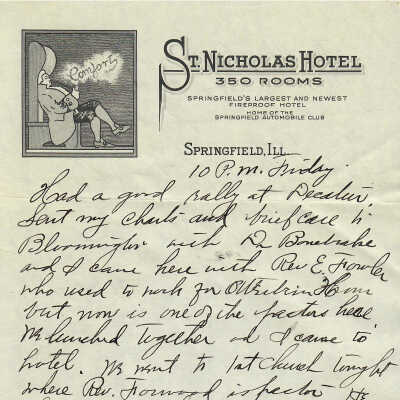 Comfort
ST. NICHOLAS HOTEL
350 ROOMS
SPRINGFIELD'S LARGEST AND NEWEST
FIREPROOF HOTEL
HOME OF THE
SPRINGFIELD AUTOMOBILE CLUB
SPRINGFIELD, ILL.
10 P.M. Friday.
Had a good rally at Decatur.
Sent my charts and briefcase to
Bloomington with Dr Bonebrake
and I came here with Rev E. Fowler
who used to work for Otterbein Home
but now is one of the pastors here
We lunched together and I came to
hotel. We went to 1st church tonight
where Rev. Forward is pastor He